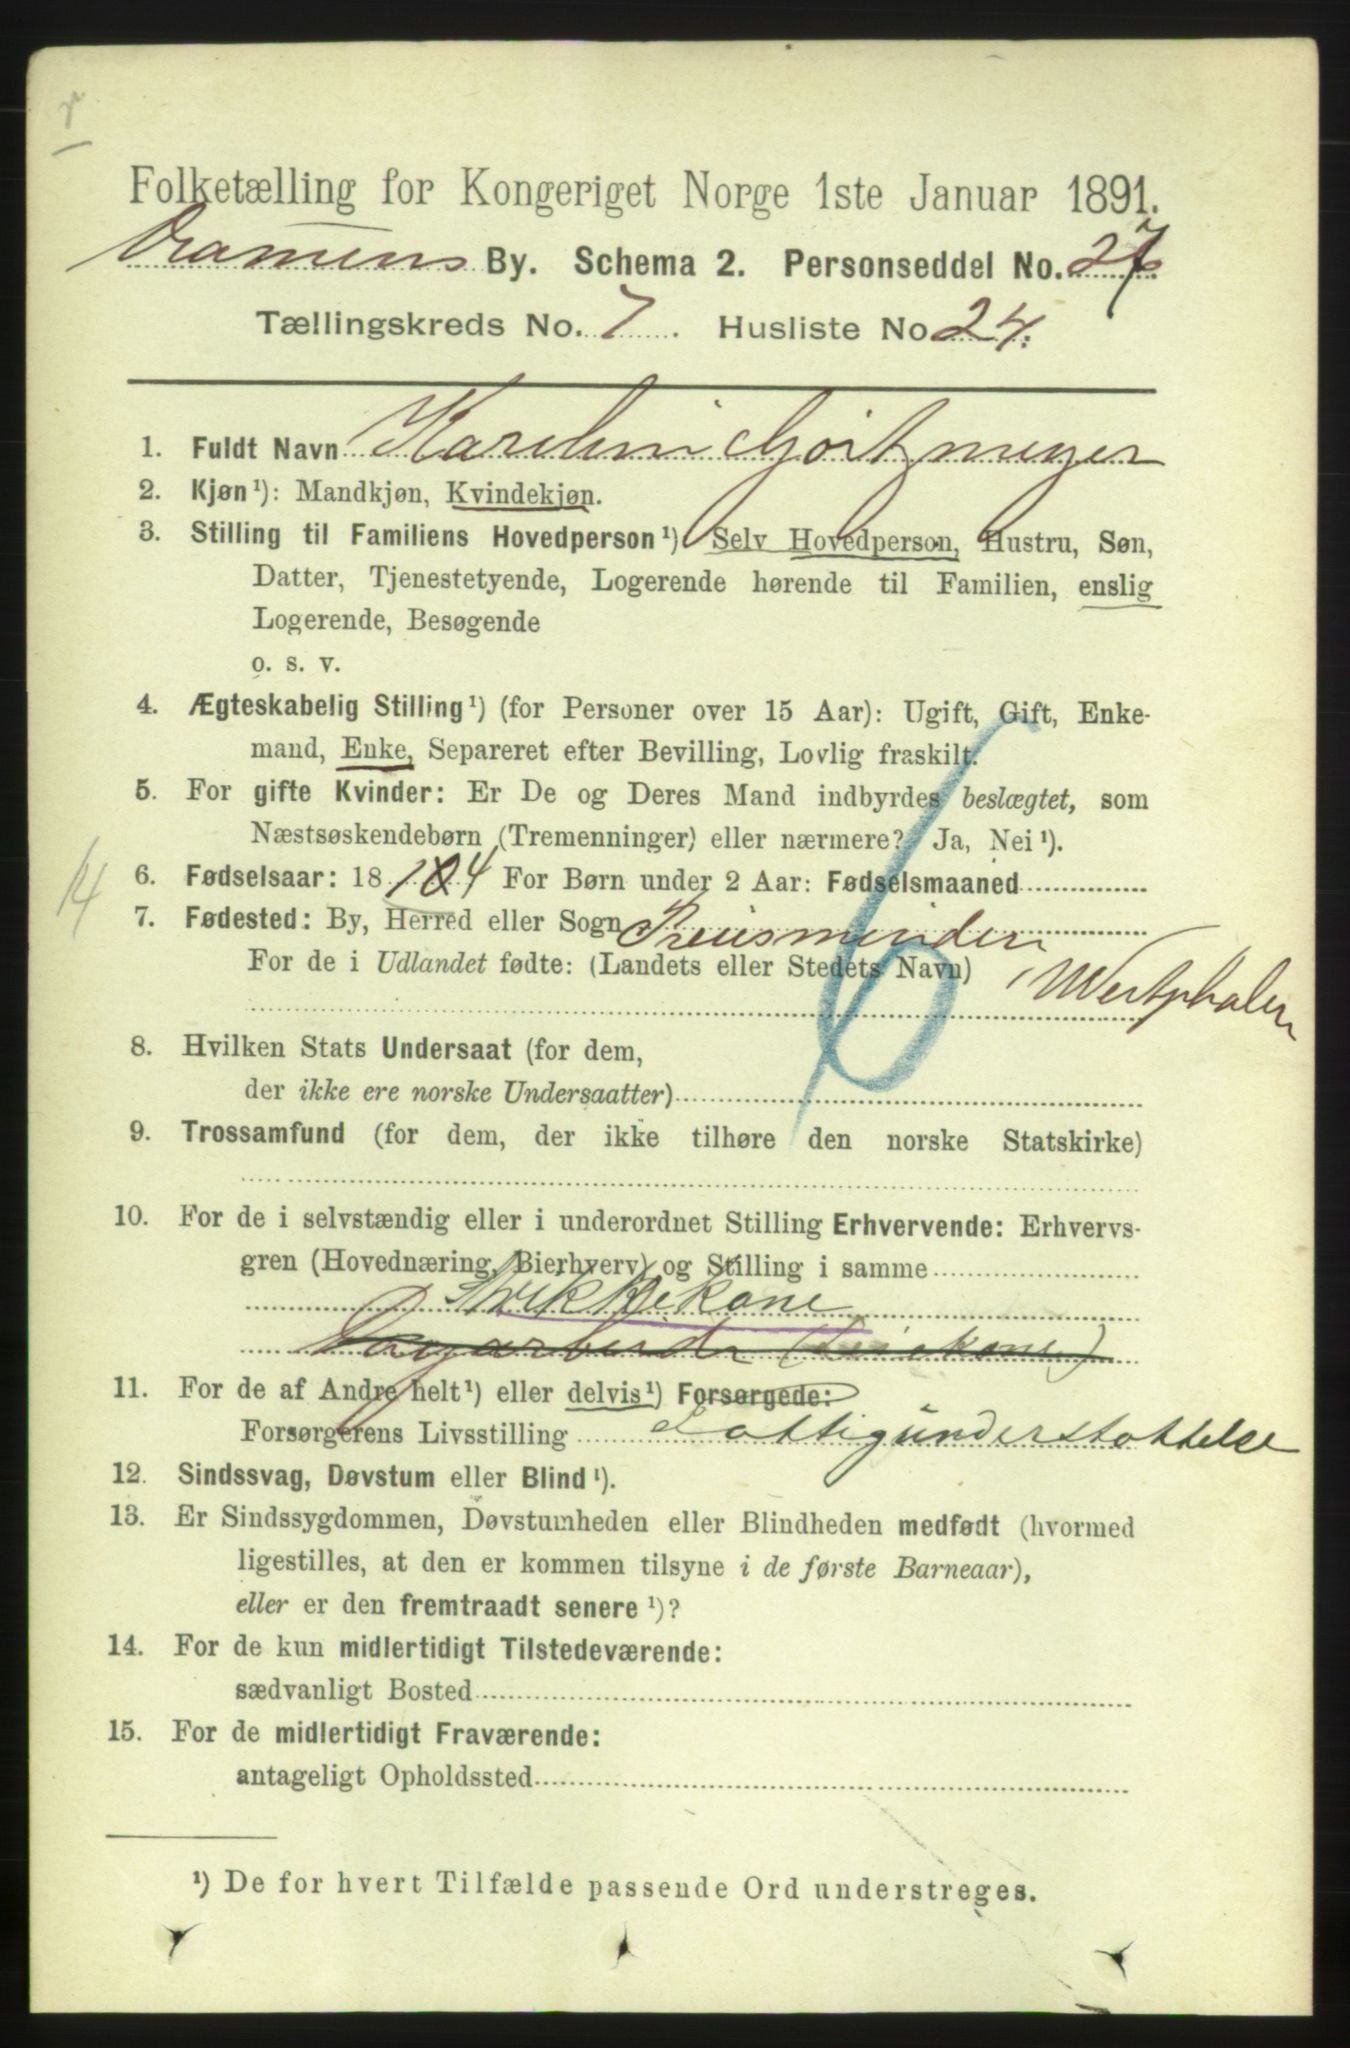 Folketælling for Kongeriget Norge 1ste Januar 1891.
Dramens By. Schema 2. Personseddel No. 27
Tællingskreds No. 7. Husliste No 24.
1. Fuldt Navn Karolini Gortzmeyer
2. Kjøn¹): Mandkjøn, Kvindekjøn.
3. Stilling til Familiens Hovedperson¹) Selv Hovedperson, Hustru, Søn,
Datter, Tjenestetyende, Logerende hørende til Familien, enslig
Logerende, Besøgende
o. s. v.
4. Ægteskabelig Stilling¹) (for Personer over 15 Aar): Ugift, Gift, Enke-
mand, Enke, Separeret efter Bevilling, Lovlig fraskilt.
5. For gifte Kvinder: Er De og Deres Mand indbyrdes beslægtet, som
Næstsøskendebørn (Tremenninger) eller nærmere? Ja, Nei¹).
14
6. Fødselsaar: 18 14 For Børn under 2 Aar: Fødselsmaaned
7. Fødested: By, Herred eller Sogn Preusminden
For de i Udlandet fødte: (Landets eller Stedets Navn) Westphalen
6
8. Hvilken Stats Undersaat (for dem,
der ikke ere norske Undersaatter)
9. Trossamfund (for dem, der ikke tilhøre den norske Statskirke)
10. For de i selvstændig eller i underordnet Stilling Erhvervende: Erhvervs-
gren (Hovednæring, Bierhverv) og Stilling i samme
Strikkekone
Dagarbeide
11. For de af Andre helt¹) eller delvis¹) Forsørgede:
Forsørgerens Livsstilling Fattigunderstøttelse
12. Sindssvag, Døvstum eller Blind¹).
13. Er Sindssygdommen, Døvstumheden eller Blindheden medfødt (hvormed
ligestilles, at den er kommen tilsyne i de første Barneaar),
eller er den fremtraadt senere¹)?
14. For de kun midlertidigt Tilstedeværende:
sædvanligt Bosted
15. For de midlertidigt Fraværende:
antageligt Opholdssted
¹) De for hvert Tilfælde passende Ord understreges.